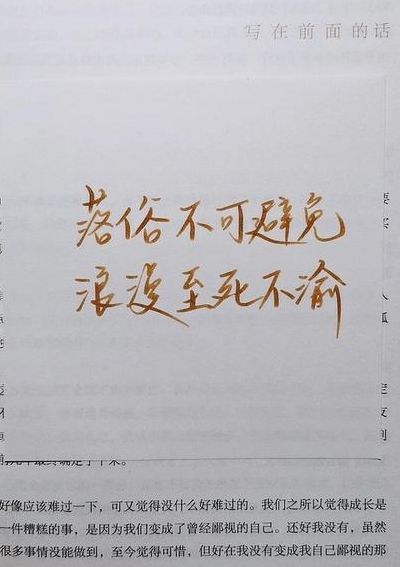 写在前面的话
落俗不可避免
浪漫至死不渝
人
定
到
好像应该难过一下，可又觉得没什么好难过的。我们之所以觉得成长是
一件糟糕的事，是因为我们变成了曾经鄙视的自己。还好我没有，虽然
很多事情没能做到，至今觉得可惜，但好在我没有变成我自己鄙视的那